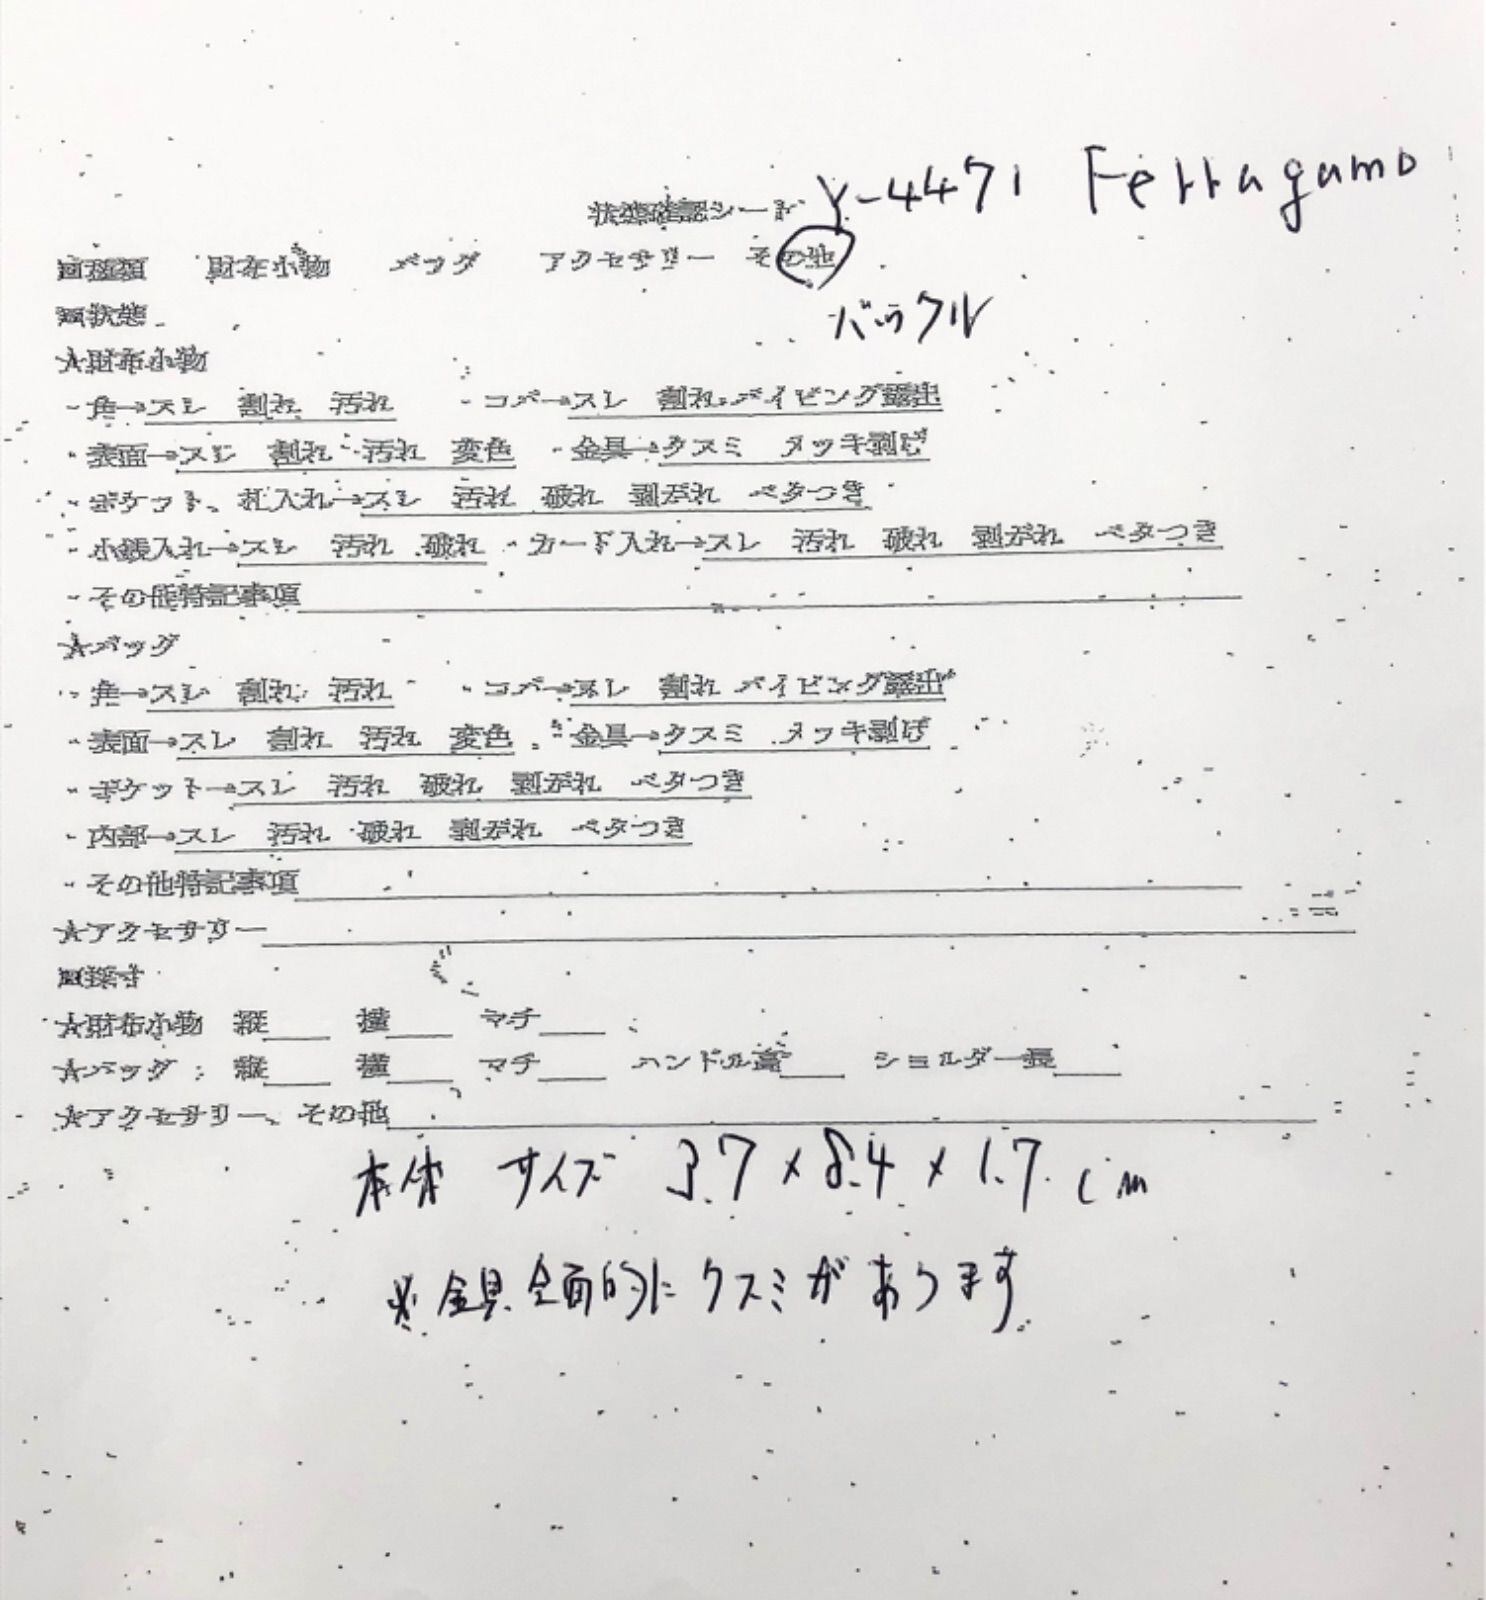 状態確認シート Y-4471 Ferragamo
□種類 財布小物 バッグ アクセサリー その他
バックル
□状態
★財布小物
・角→スレ 割れ 汚れ ・コバ→スレ 割れ パイピング露出
・表面→スレ 割れ 汚れ 変色 ・金具→クスミ メッキ剥げ
・ポケット、札入れ→スレ 汚れ 破れ 剥がれ ベタつき
・小銭入れ→スレ 汚れ 破れ ・カード入れ→スレ 汚れ 破れ 剥がれ ベタつき
・その他特記事項
★バッグ
・角→スレ 割れ 汚れ ・コバ→スレ 割れ パイピング露出
・表面→スレ 割れ 汚れ 変色 ・金具→クスミ メッキ剥げ
・ポケット→スレ 汚れ 破れ 剥がれ ベタつき
・内部→スレ 汚れ 破れ 剥がれ ベタつき
・その他特記事項
★アクセサリー
□採寸
★財布小物 縦 横 マチ
★バッグ 縦 横 マチ ハンドル高 ショルダー長
★アクセサリー、その他
本体 サイズ 3.7×8.4×1.7 cm
※金具全面的にクスミがあります